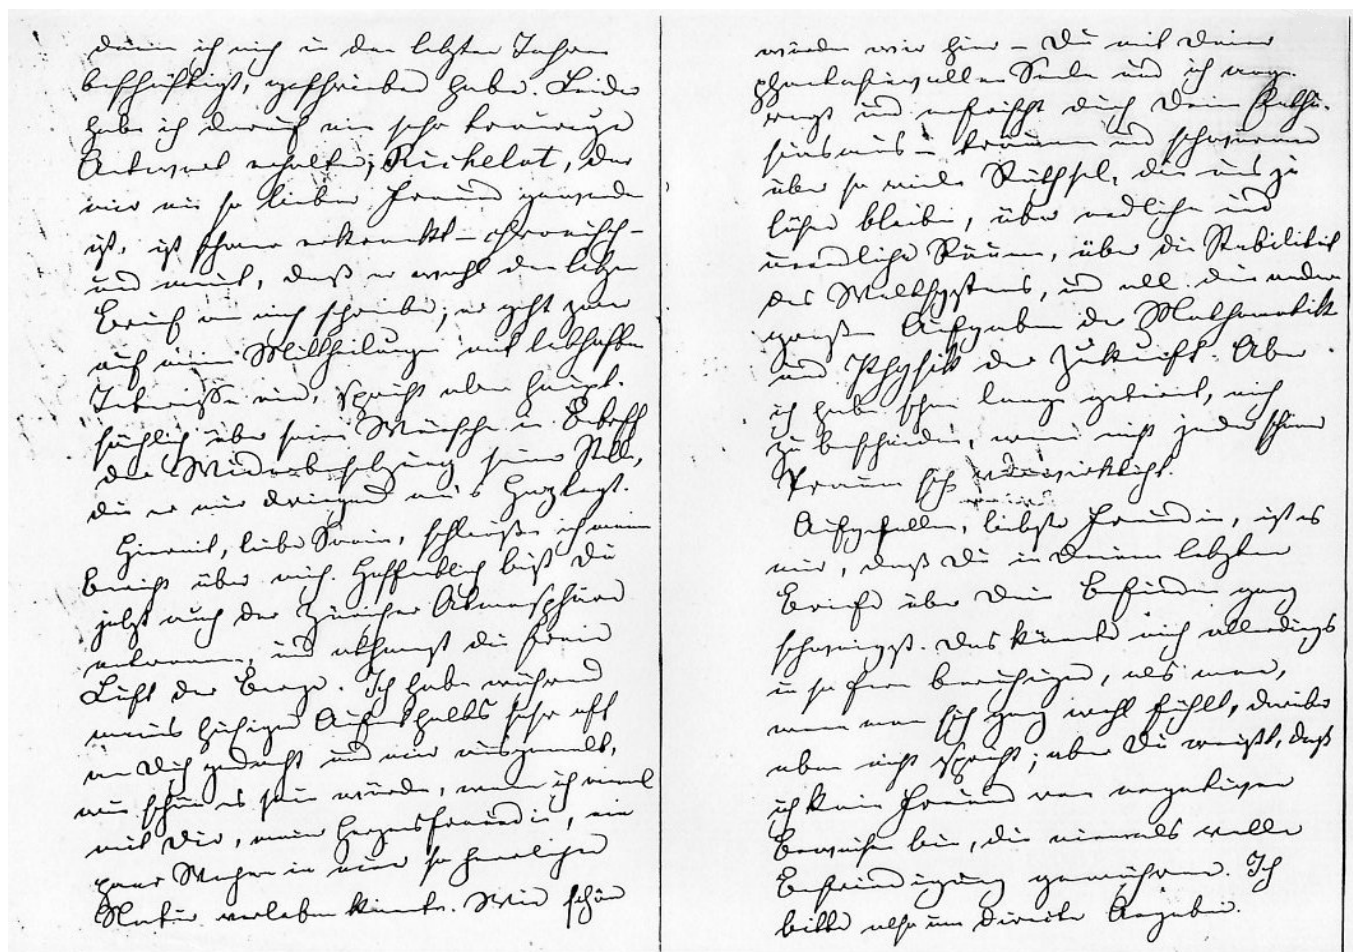 darin ich mich in den letzten Jahren
beschäftigt, geschrieben habe. Leider
habe ich darauf eine sehr traurige
Antwort erhalten; Richelot, der
mir ein so lieber Freund geworden
ist, ist schwer erkrankt – chronisch –
und meint, daß er wohl den letzten
Brief an mich schreibe; er geht zwar
auf meine Mittheilungen mit lebhaftem
Interesse ein, spricht aber haupt-
sächlich über seine Wünsche in Betreff
der Wiederbesetzung seiner Stelle,
die er mir dringend ans Herz legt.
Hiermit, liebe Sonia, schließe ich meinen
Bericht über mich. Hoffentlich bist Du
jetzt auch der Züricher Atmosphäre
entronnen, und athmest die freie
Luft der Berge. Ich habe während
meines hiesigen Aufenthalts sehr oft
an Dich gedacht und mir ausgemalt,
wie schön es sein würde, wenn ich einmal
mit Dir, meine Herzensfreundin, ein
paar Wochen in einer so herrlichen
Natur verleben könnte. Wie schön
würden wir hier – Du mit Deiner
phantasievollen Seele und ich ange-
regt und erfrischt durch Deinen Enthu-
siasmus – träumen und schwärmen
über so viele Räthsel, die uns zu
lösen bleiben, über endliche und
unendliche Räume, über die Stabilität
des Weltsystems, und all die andern
großen Aufgaben der Mathematik
und Physik der Zukunft. Aber
ich habe schon lange gelernt, mich
zu bescheiden, wenn nicht jeder schöne
Traum sich verwirklicht.
Aufgefallen, liebste Freundin, ist es
mir, daß Du in Deinem letzten
Briefe über Dein Befinden ganz
schweigst. Das könnte mich allerdings
in so fern beruhigen, als man,
wenn man sich ganz wohl fühlt, darüber
eben nicht spricht; aber Du weißt, daß
ich kein Freund von negativen
Beweisen bin, die niemals volle
Befriedigung gewähren. Ich
bitte also um directe Angaben.